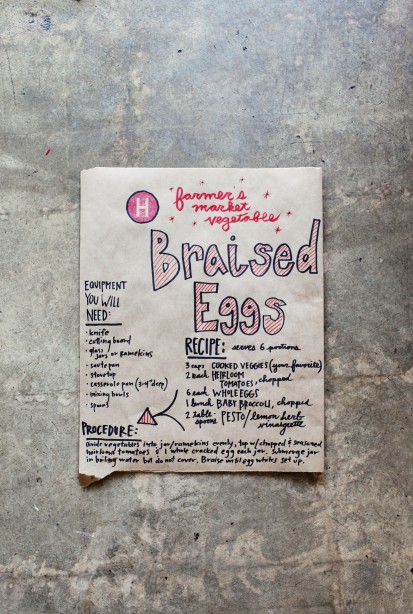 H
farmer's
market
vegetable
Braised
Eggs
EQUIPMENT
YOU WILL
NEED:
• knife
• cutting board
• glass
jars or ramekins
• saute pan
• stovetop
• casserole pan (3-4" deep)
• mixing bowls
• spoons
RECIPE: serves 6 portions
3 cups COOKED VEGGIES (your favorite)
2 each HEIRLOOM
TOMATOES, chopped
6 each WHOLE EGGS
1 bunch BABY BROCCOLI, chopped
2 table-
spoons PESTO/lemon herb
vinaigrette
PROCEDURE:
Divide vegetables into jar/ramekins evenly, top w/ chopped & seasoned
heirloom tomatoes & 1 whole cracked egg each jar. Submerge jar
in boiling water but do not cover. Braise until egg whites set up.